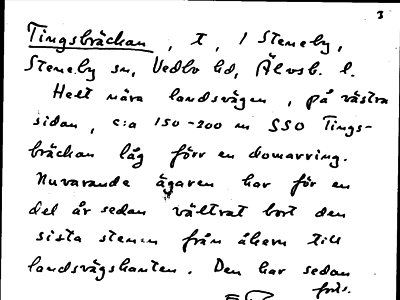 3
Tingsbräckan, t, i Steneby,
Steneby sn, Vedbo hd, Älvsb. l.
Helt nära landsvägen, på västra
sidan, c:a 150-200 m SSO Tings-
bräckan låg förr en domarring.
Nuvarande ägaren har för en
del år sedan vältrat bort den
sista stenen från åkern till
landsvägskanten. Den har sedan
forts.